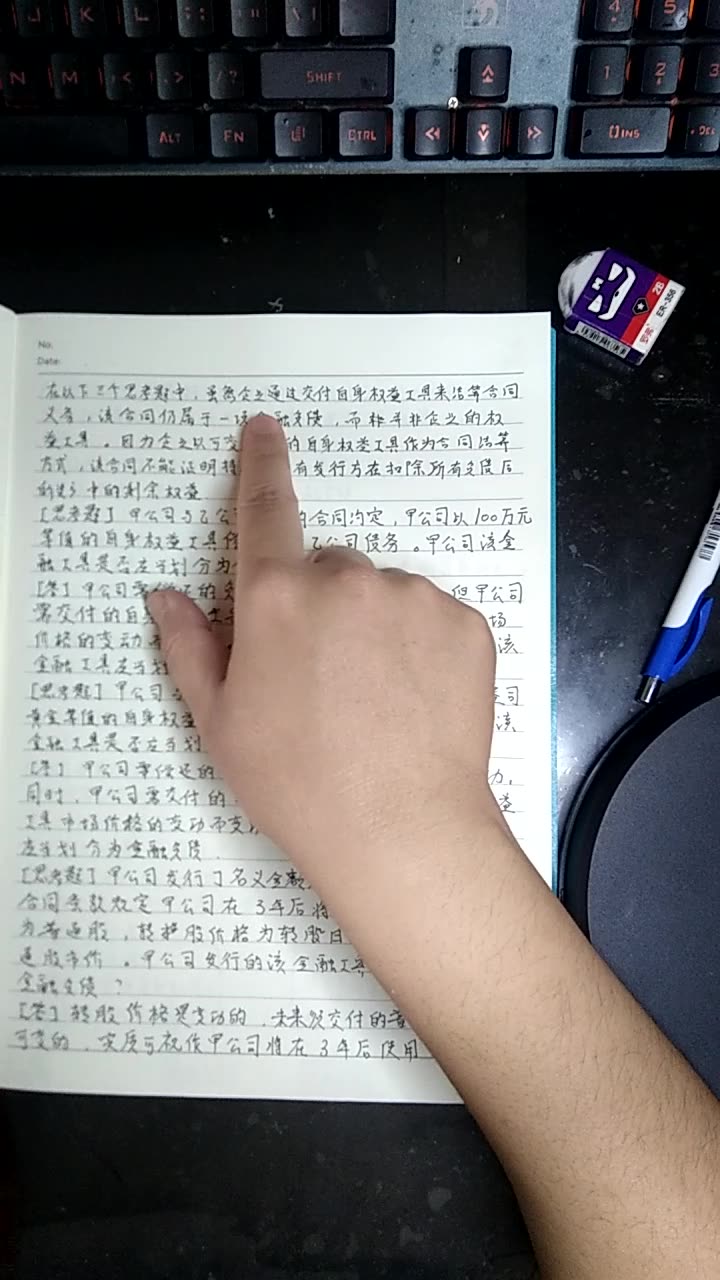 J K L
N M < > / ?
SHIFT
4 5
1 2 3
ALT FN CTRL
INS DEL
2B
ER-356
No.
Date:
在以下三个思考题中，虽然企业通过交付自身权益工具来结算合同
义务，该合同仍属于一项金融负债，而并非企业的权
益工具。因为企业以可变的自身权益工具作为合同结算
方式，该合同不能证明持有发行方在扣除所有负债后
的中的剩余权益
[思考题] 甲公司与乙公的合同约定，甲公司以100万元
等值的自身权益工具乙公司债务。甲公司该金
融工具是否应当划分为
[答] 甲公司需偿还的但甲公司
需交付的自场
价格的变动该
金融工具应当划
[思考题] 甲公司司
黄金等值的自身权益该
金融工具是否应当划
[答] 甲公司需偿还的力，
同时，甲公司需交付的益
工具市场价格的变动而变
应当划分为金融负债。
[思考题] 甲公司发行了名义金额
合同条款约定甲公司在3年后将
为普通股，转换股价格为转股日
通股市价。甲公司发行的该金融工具
金融负债？
[答] 转股价格是变动的，未来须交付的普
可变的，实质可视作甲公司将在3年后使用